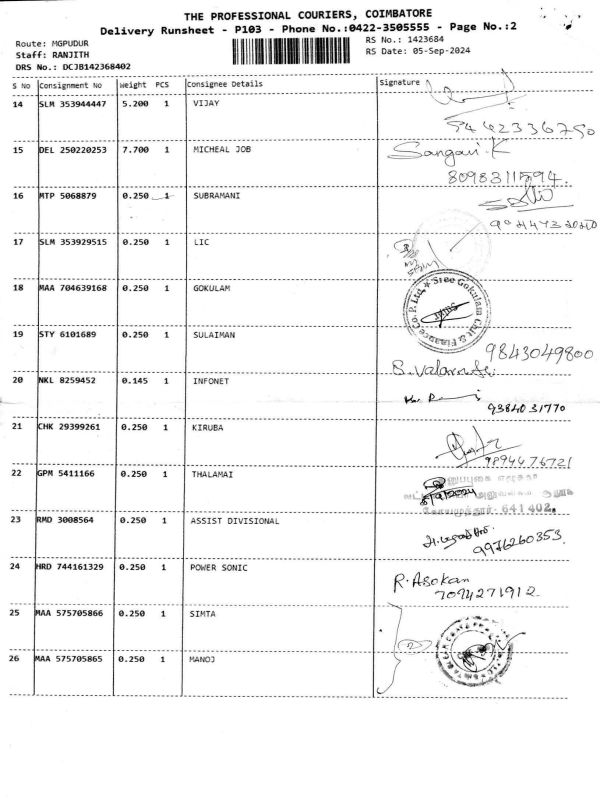 THE PROFESSIONAL COURIERS, COIMBATORE
Delivery Runsheet - P103 - Phone No.:0422-3505555 - Page No.:2
Route: MGPUDUR
RS No.: 1423684
Staff: RANJITH
RS Date: 05-Sep-2024
DRS No.: DCJB142368402
S No Consignment No Weight PCS Consignee Details Signature
14 SLM 353944447 5.200 1 VIJAY
9442336790
15 DEL 250220253 7.700 1 MICHEAL JOB Sangavi.K
8098311594.
16 MTP 5068879 0.250 1 SUBRAMANI
17 SLM 353929515 0.250 1 LIC
18 MAA 704639168 0.250 1 GOKULAM
Sree Gokulam Chit & Finance Co. P. Ltd.
19 STY 6101689 0.250 1 SULAIMAN 9843049800
20 NKL 8259452 0.145 1 INFONET
9384031770
21 CHK 29399261 0.250 1 KIRUBA
9894476721
22 GPM 5411166 0.250 1 THALAMAI
641 402.
23 RMD 3008564 0.250 1 ASSIST DIVISIONAL
9976260353.
24 HRD 744161329 0.250 1 POWER SONIC R. Asokan
7094271912
25 MAA 575705866 0.250 1 SIMTA
26 MAA 575705865 0.250 1 MANOJ